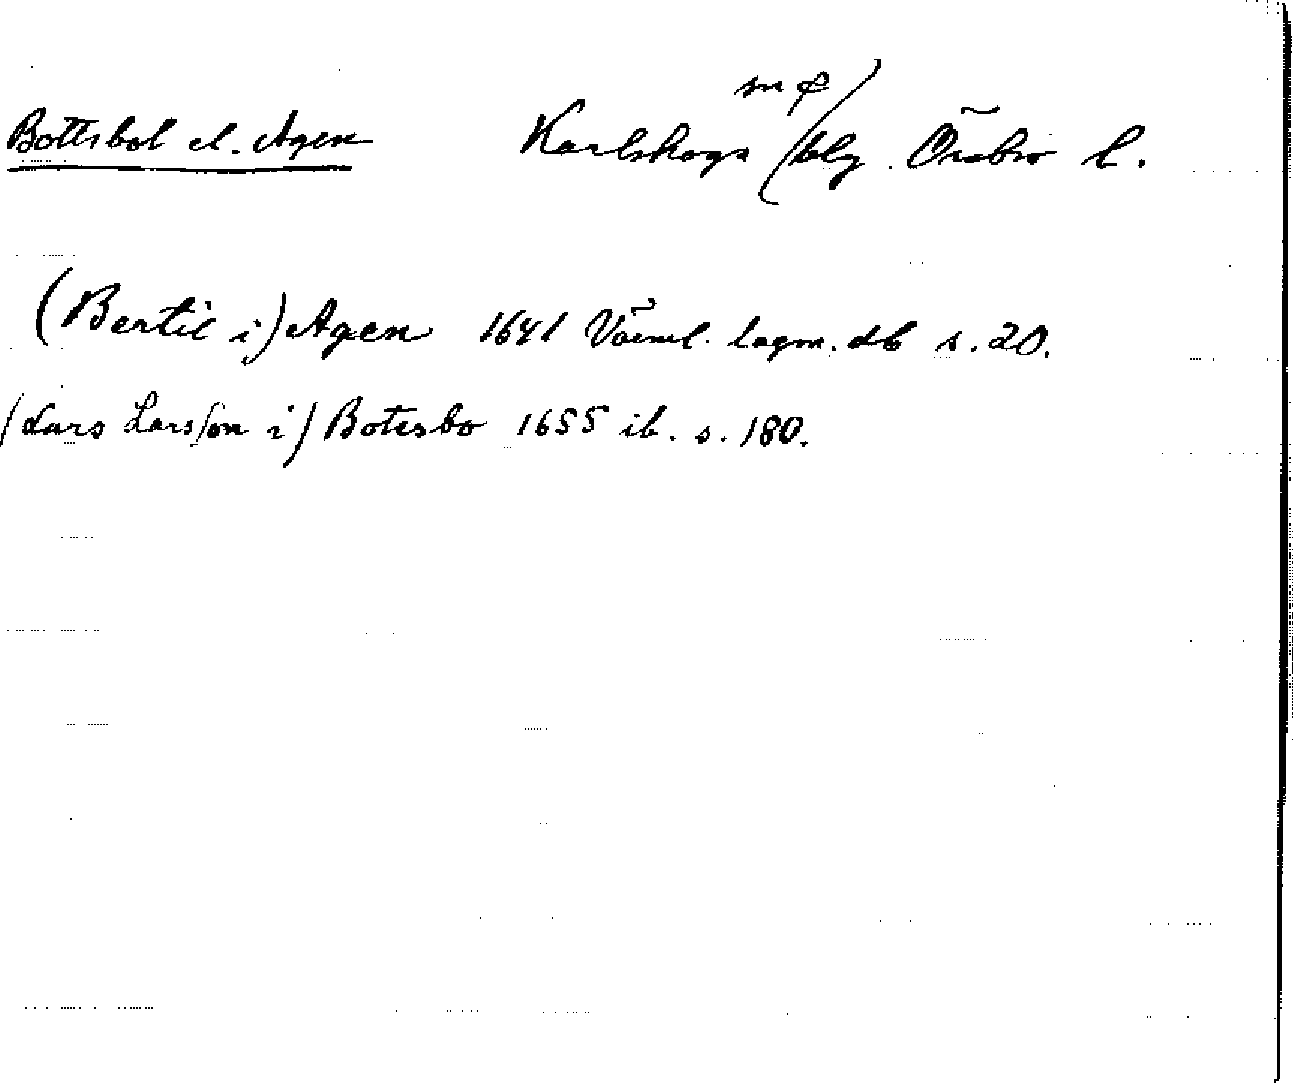 Bottsbol el. Agen Karlskogs sn o/ blg. Örebro l.
(Bertil i) Agen 1641 Värml. lagm. db s. 20.
(Lars Larsson i) Botesbo 1655 ib. s. 180.